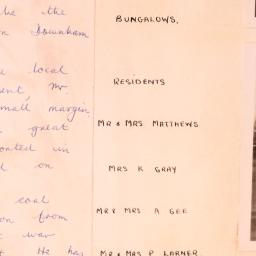 be the
Downham
local
ent, Mr.
small margin,
great
on
coal
on from
war
He has
BUNGALOWS,
RESIDENTS
MR & MRS MATTHEWS
MRS K GRAY
MR & MRS A GEE
MR & MRS P LARNER